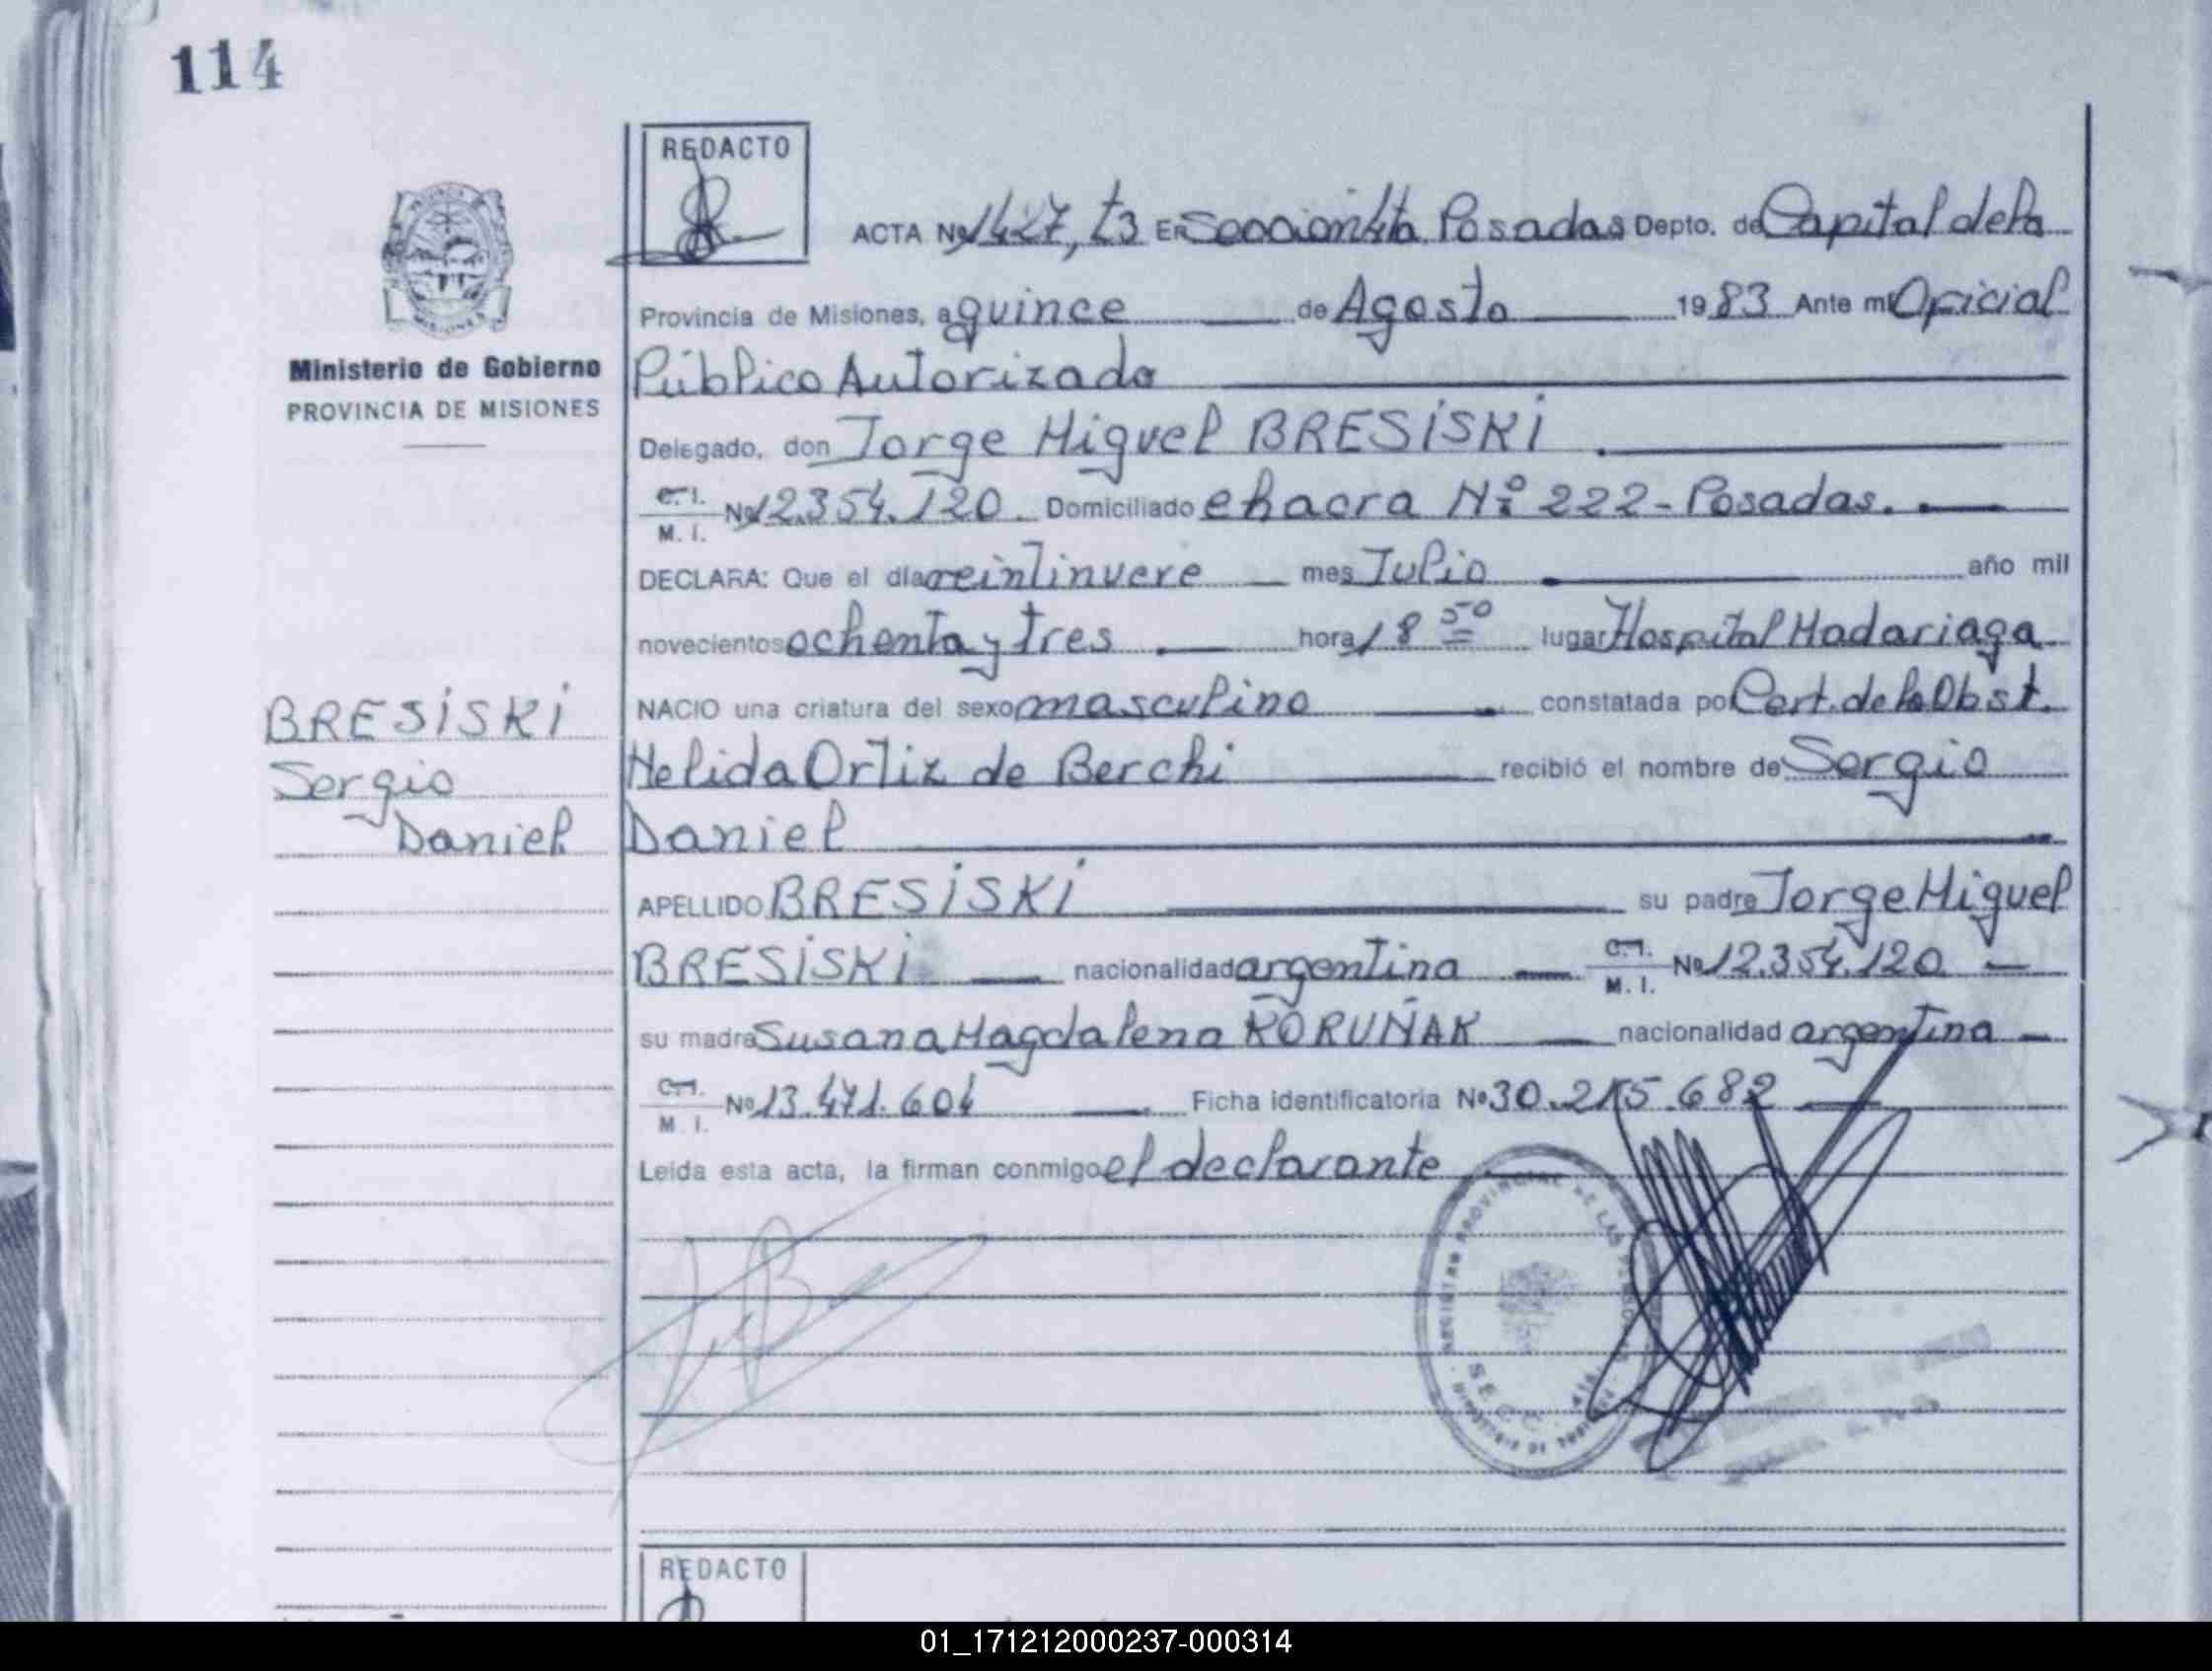 114
REDACTO
ACTA Nº 1427, t3 En Sección 4ta Posadas Depto. de Capital de la
Provincia de Misiones, a quince de Agosto 1983 Ante mi Oficial
Ministerio de Gobierno
PROVINCIA DE MISIONES
Público Autorizado
Delegado, don Jorge Miguel BRESiSKi
C.I. M. I. Nº 12.354.120. Domiciliado chacra Nº 222 - Posadas.
DECLARA: Que el día veintinueve mes Julio año mil
novecientos ochenta y tres hora 18 50 lugar Hospital Madariaga
NACIO una criatura del sexo masculino constatada por Cert. de la Obst.
BRESiSKi
Sergio
Daniel
Nelida Ortiz de Berchi recibió el nombre de Sergio
Daniel
APELLIDO BRESiSKi su padre Jorge Miguel
BRESiSKi nacionalidad argentina C.I. M. I. Nº 12.354.120
su madre Susana Magdalena KORUÑAK nacionalidad argentina
C.I. M. I. Nº 13.471.604 Ficha identificatoria Nº 30.215.682
Leída esta acta, la firman conmigo el declarante
REGISTRO PROVINCIAL DE LAS PERSONAS
SECC. 4ta
REDACTO
01_171212000237-000314